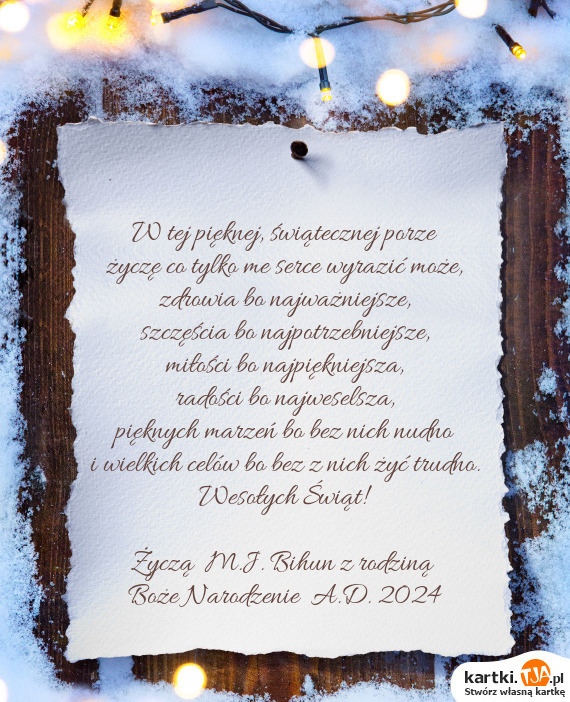 W tej pięknej, świątecznej porze
życzę co tylko me serce wyrazić może,
zdrowia bo najważniejsze,
szczęścia bo najpotrzebniejsze,
miłości bo najpiękniejsza,
radości bo najweselsza,
pięknych marzeń bo bez nich nudno
i wielkich celów bo bez z nich żyć trudno.
Wesołych Świąt!
Życzą M.J. Bihun z rodziną
Boże Narodzenie A.D. 2024
kartki.TJA.pl
Stwórz własną kartkę